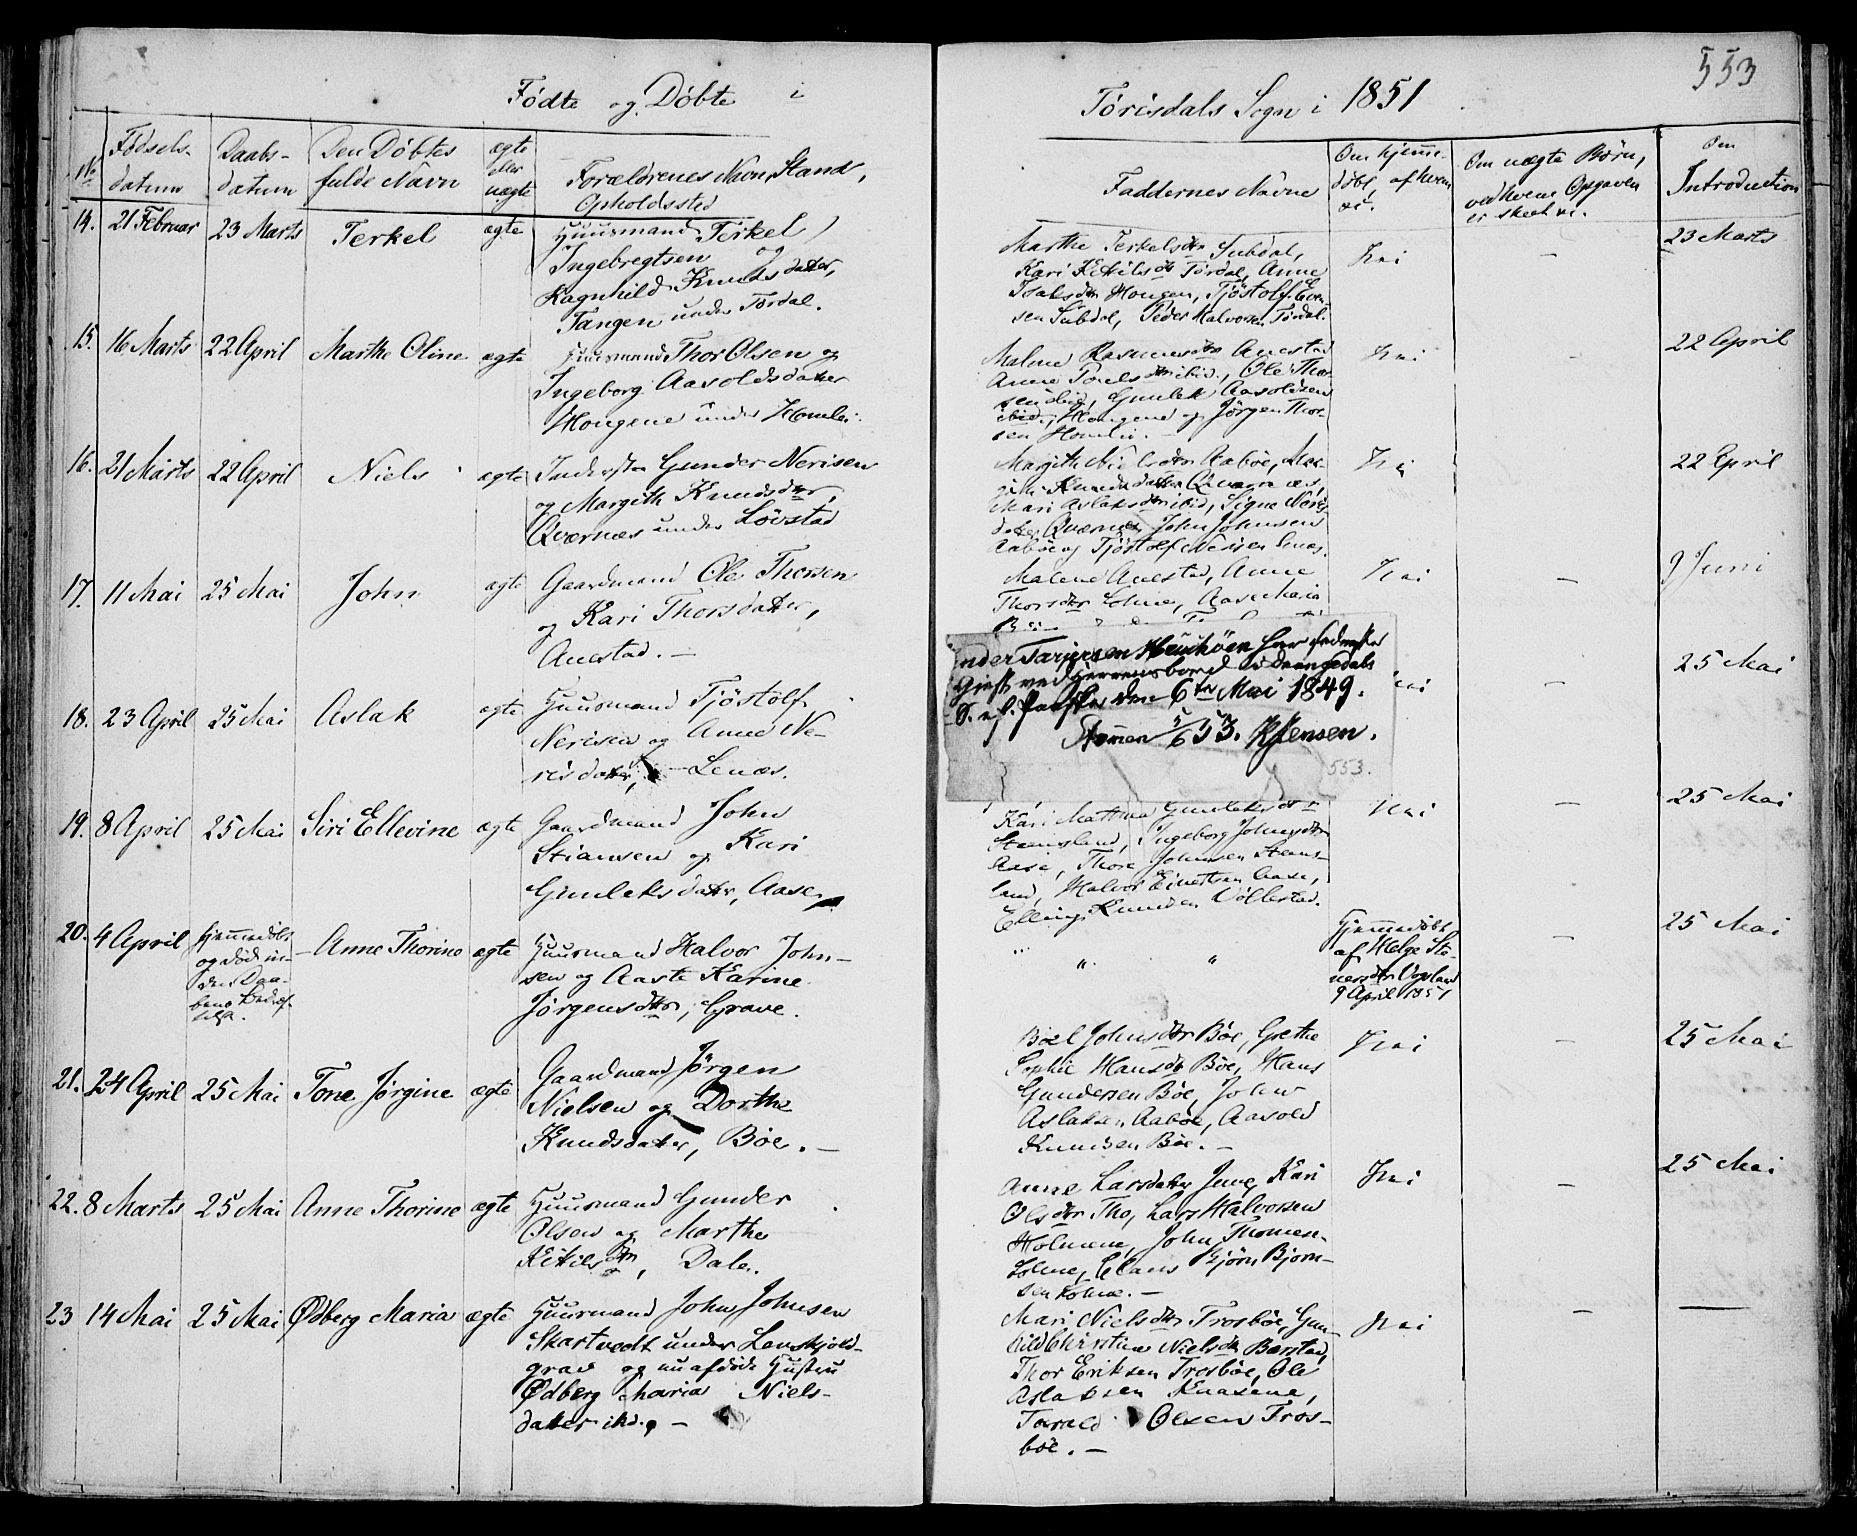 553
Fødte og Døbte i
Törisdals Sogn i 1851
No
Fødsels-
datum
Daabs-
datum
Den Døbtes
fulde Navn
ægte
eller
uægte
Forældrenes Navn, Stand,
Opholdssted
Faddernes Navne
Om hjemme-
døbt, af hvem
Om uægte Børn,
ved hvem Opgaven
er skeet
Om
Introduction
14. 21 Februar 23 Marts Terkel ægte
Huusmand Terkel
Ingebregtsen og
Ragnhild Knudsdatter,
Tangen under Tördal.
Marthe Terkelsdtr Subdal,
Kari Ketilsdtr Tördal, Anne
Isaksdtr Hougen, Tjöstolf Even
sen Subdal, Peder Halvorsen Tördal.
Nei
-
23 Marts
15. 16 Marts 22 April Marthe Oline ægte
Huusmand Thor Olsen og
Ingeborg Aasoldsdatter
Hougene under Homlei.
Malene Rasmusdtr Auestad
Anne Poulsdtr ibid., Ole Thor
sen ibid, Gunlek Aasoldsen
ibid., Hougene og Jörgen Thor
sen Homlei. -
Nei
-
22 April
16. 21 Marts 22 April Niels ægte
Inderster Gunder Nerisen
og Margith Knudsdtr,
Qværnæs under Lövstad
Margith Nielsdtr Aabøe, Mar-
gith Knudsdatter Qværnæs,
Mari Aslaksdtr ibid, Signe Neris
datter Qværnæs, John Johnsen
Aabøe og Tjöstolf Nerisen Lenæs.
Nei
22 April
17. 11 Mai 25 Mai John ægte
Gaardmand Ole Thorsen
og Kari Thorsdatter,
Auestad. -
Malene Auestad, Anne
Thorsdtr Holme, Aase Maria
Nei
-
9 Juni
nder Tarjersen Heiehöen har sidste
Gjest ved Herrens bord i Drangedals
S. e. f. Paaske den 6te Mai 1849.
5/6 53. Jensen.
553.
18. 23 April 25 Mai Aslak ægte
Huusmand Tjöstolf
Nerisen og Anne Ne-
risdatter, - Lenæs.
Nei
-
25 Mai
19. 8 April 25 Mai Siri Ellevine ægte
Gaardmand John
Stiansen og Kari
Gunleksdatter, Aase,
Kari Mathea Gunleksdtr
Stensland, Ingeborg Johnsdtr
Aase, Thore Johnsen Stens-
land, Halvor Einertsen Aase,
Elling Knudsen Völlestad.
Nei
-
25 Mai
20. 4 April
Hjemmedøbt
og død in-
den Daa-
bens Bekræf-
telse.
- Anne Thorine ægte
Huusmand Halvor John-
sen og Aaste Karine
Jörgensdtr, Grave.
" " "
Hjemmedøbt
af Helge Ste-
nersdtr Vogsland
9 April 1851
-
25 Mai
21. 24 April 25 Mai Tone Jørgine ægte
Gaardmand Jörgen
Nielsen og Dorthe
Knudsdatter, Bøe. -
Boel Johnsdtr Bøe, Grethe
Sophie Hansdtr Bøe, Hans
Gundersen Bøe, John
Aslaksen Aabøe, Aasold
Knudsen Bøe. -
Nei
-
25 Mai
22. 8 Marts 25 Mai Anne Thorine ægte
Huusmand Gunder
Olsen og Marthe
Ketilsdtr, Dale.
Anne Larsdatter Juve, Kari
Olsdtr Tho, Lars Halvorsen
Holmene, John Thomsen
Holme, Claus Bjørn Bjørn-
sen Holme. -
Nei
-
25 Mai
23 14 Mai 25 Mai Ødberg Maria ægte
Huusmand John Johnsen
Skartvedt under Lauskjold-
grav og nu afdøde Hustru
Ødberg Maria Niels-
datter ibd. -
Mari Nielsdtr Trosbøe, Gun-
hild Christine Nielsdtr Barstad,
Thor Eriksen Trosbøe, Ole
Aslaksen Knasene,
Tarald Olsen Tros-
bøe. -
Nei
-
-